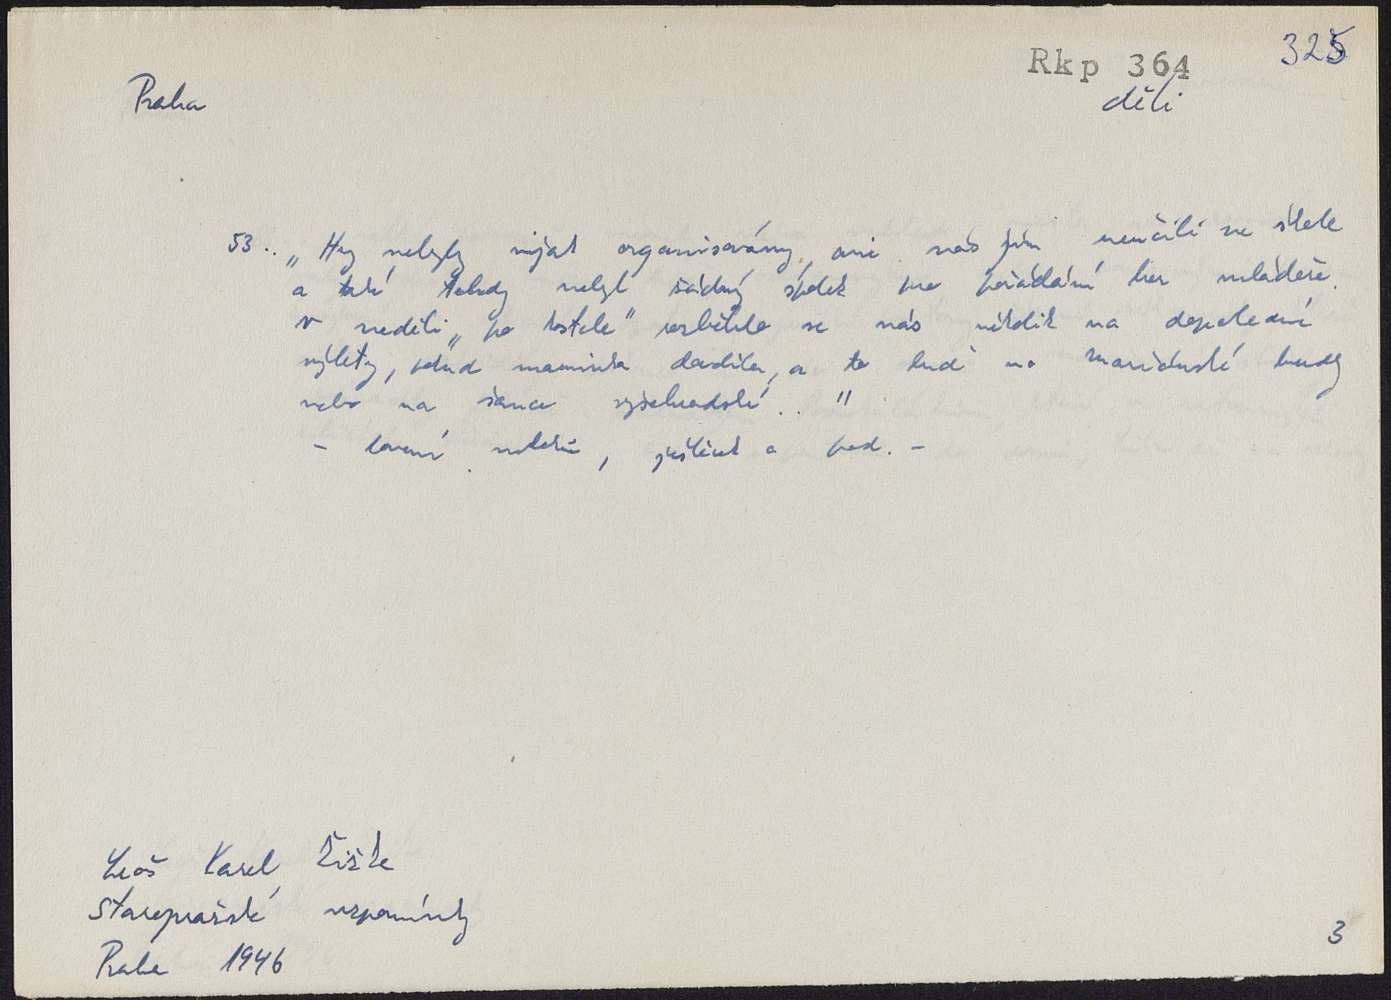 Rkp 364
325
Praha
děti
53. „Hry nebyly nijak organisovány, ani nás jim neučili ve škole
a také tehdy nebyl žádný spolek pro pořádání her mládeže.
V neděli „po kostele" rozběhlo se nás několik na dopolední
výlety, pokud maminka dovolila, a to buď na Mariánské hradby
nebo na šance vyšehradské..."
- lovení, ještěrek a pod. -
Leoš Karel Žižka
Staropražské vzpomínky
Praha 1946
3